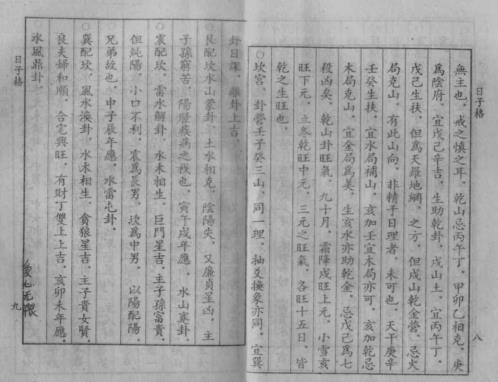 日子格
八
無主也，戒之慎之耳，乾山忌丙午丁，甲卯乙相克，庚
為陰府，宜戊己辛吉，生助乾卦，戌山土，宜丙午丁，
戊己生扶，但為天羅地網，之方，但戌山乾金營，忌火
局克山，有此山向，非精于日理者，未可也，天干庚辛
壬癸生扶，宜水局補山，亥加壬宜木局亦可，亥加乾忌
木局克山，宜金局為美，生亥水亦助乾金，忌戊己為七
殺凶矣，乾山卦旺氣，九十月，霜降戌旺上元，小雪亥
旺下元，立冬乾旺中元，三元之旺氣，各旺十五日，皆
乾之生旺也，
○坎宮，卦營壬子癸三山，同一理，抽爻換象亦同，宜巽
卦日課，離卦上吉，
○艮配坎水山蒙卦，土水相克，陰陽失，又廉貞星凶，主
子孫窮苦，陽壓疾病之我也，寅午戌年應，水山蹇卦，
○震配坎，雷水解卦，水木相生，巨門星吉，主子孫富貴，
但純陽，小口不利，震為長男，坎為中男，以陽配陽，
兄弟故也，申子辰年應，水雷屯卦，
○巽配坎，風水渙卦，水木相生，貪狼星吉，主子貴女賢，
良夫婦和順，合宅興旺，有財丁雙上上吉，亥卯未年應，
水風鼎卦，
日子格
九